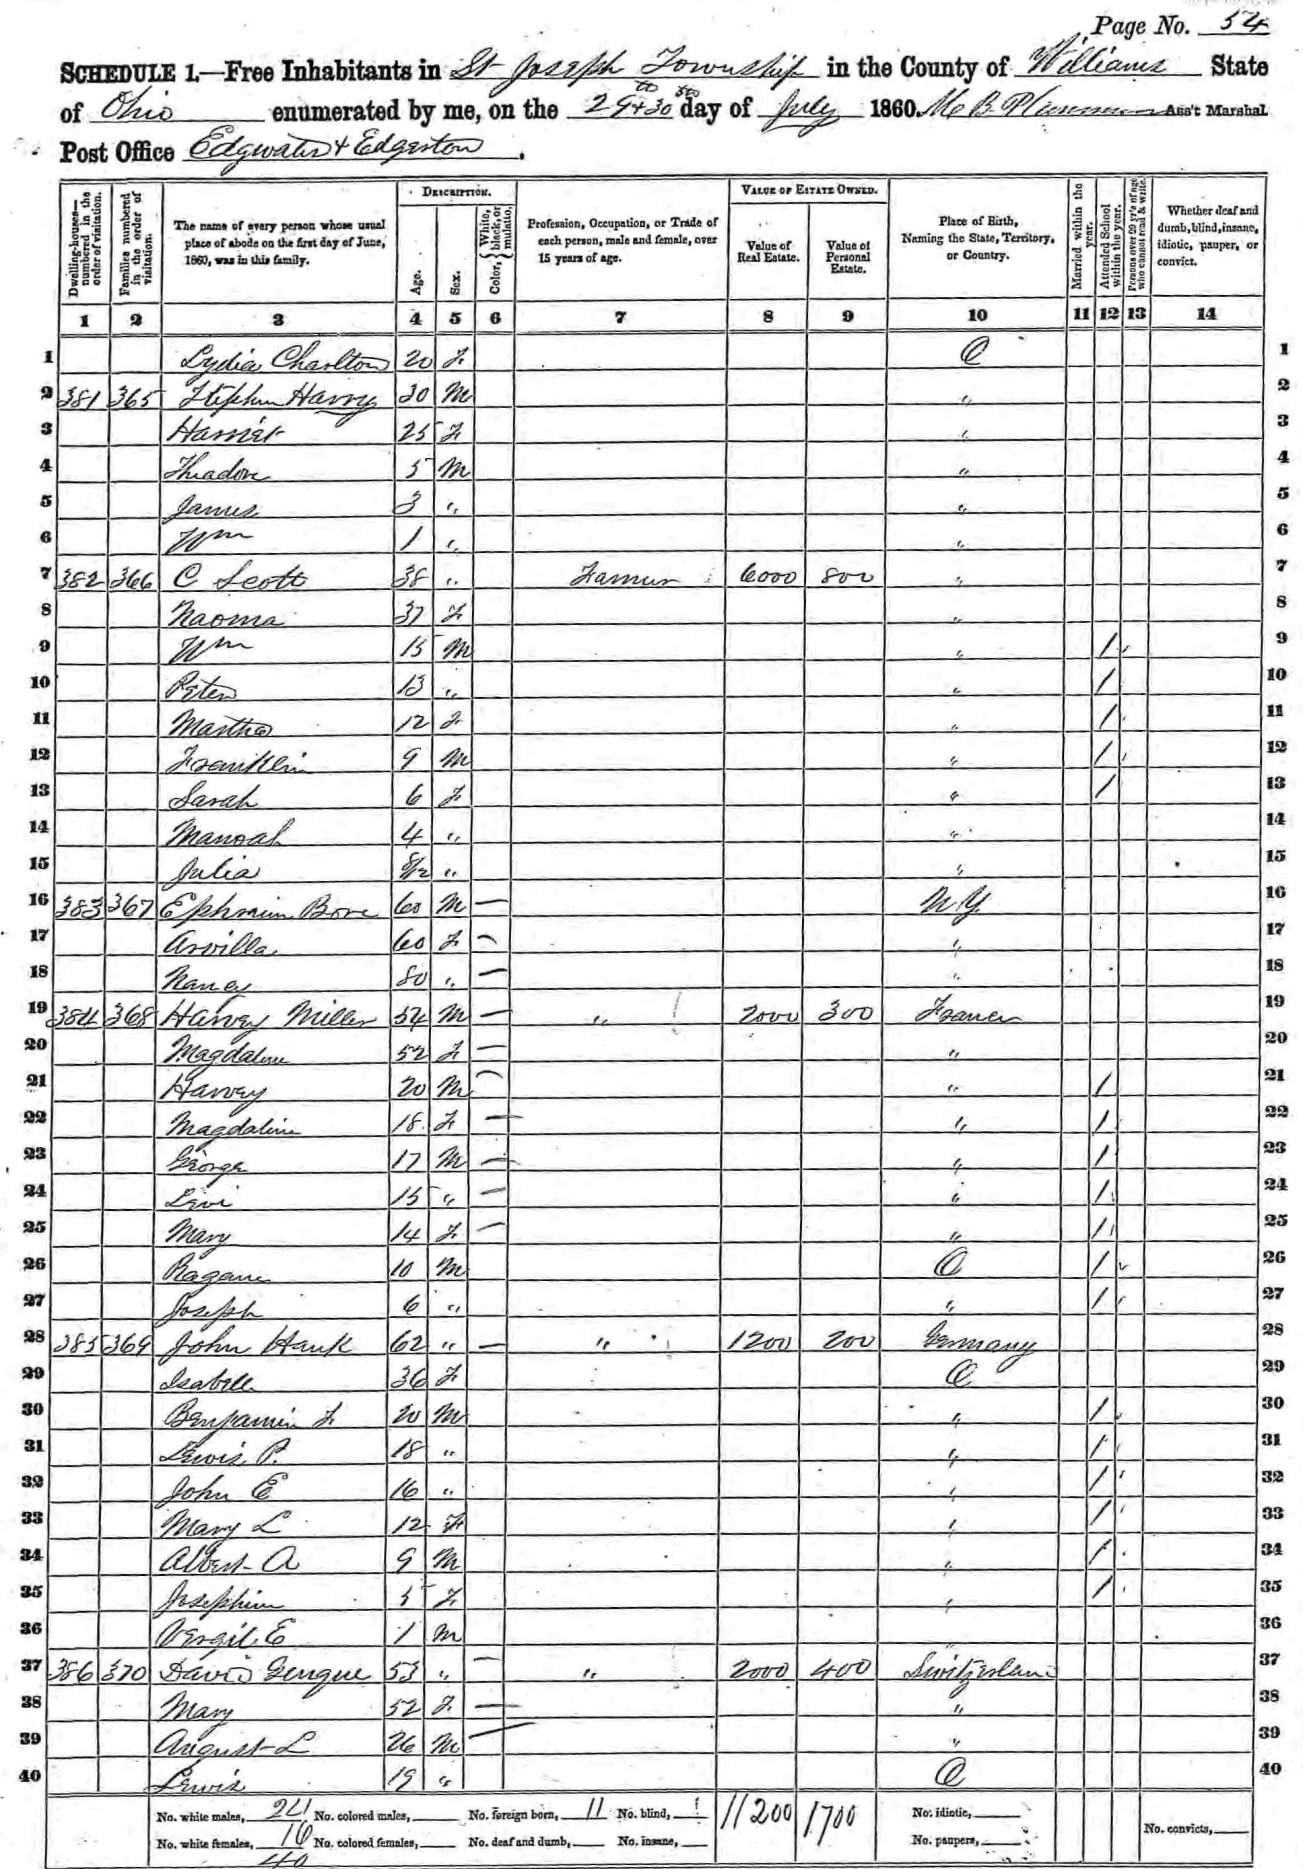 Page No. 54
SCHEDULE 1.—Free Inhabitants in St Joseph Township in the County of Williams State
of Ohio enumerated by me, on the 29th + 30th day of July 1860. Ass't Marshal
Post Office Edgwater + Edgerton.
Dwelling-houses—numbered in the order of visitation.
Families numbered in the order of visitation.
The name of every person whose usual place of abode on the first day of June, 1860, was in this family.
DESCRIPTION.
Age.
Sex.
Color, White, black, or mulatto.
Profession, Occupation, or Trade of each person, male and female, over 15 years of age.
VALUE OF ESTATE OWNED.
Value of Real Estate.
Value of Personal Estate.
Place of Birth, Naming the State, Territory, or Country.
Married within the year.
Attended School within the year.
Persons over 20 y'rs of age who cannot read & write.
Whether deaf and dumb, blind, insane, idiotic, pauper, or convict.
1 2 3 4 5 6 7 8 9 10 11 12 13 14
1 Lydia Charlton 20 F O 1
2 381 365 Stephen Harvy 30 M " 2
3 Harriet 25 F " 3
4 Theadore 5 M " 4
5 James 3 " " 5
6 Wm 1 " " 6
7 382 366 C Scott 38 " Farmer 6000 800 " 7
8 Naoma 37 F " 8
9 Wm 15 M " / 9
10 Peter 13 " " / 10
11 Martha 12 F " / 11
12 Franklin 9 M " / 12
13 Sarah 6 F " / 13
14 Manoah 4 " " 14
15 Julia 8/12 " " 15
16 383 367 Ephraim Bove 60 M — N.Y. 16
17 Arvilla 60 F — " 17
18 Nancy 80 " — " 18
19 384 368 Harvey Miller 54 M — " 2000 300 France 19
20 Magdaline 52 F — " 20
21 Harvey 20 M — " / 21
22 Magdaline 18 F — " / 22
23 George 17 M — " / 23
24 Levi 15 " — " / 24
25 Mary 14 F — " / 25
26 10 M O / 26
27 Joseph 6 " " / 27
28 385 369 John Hauk 62 " — " 1200 200 Germany 28
29 Isabell 36 F O 29
30 Benjamin F 20 M " / 30
31 Lewis P. 18 " " / 31
32 John E 16 " " / 32
33 Mary L 12 F " / 33
34 Albert A 9 M " / 34
35 Josephine 5 F " / 35
36 Vergil E 1 M " 36
37 386 370 David Gengue 53 " — " 2000 400 Switzerland 37
38 Mary 52 F — " 38
39 August L 26 M — " 39
40 Lewis 19 " O 40
No. white males, 24 No. colored males, No. foreign born, 11 No. blind, 11200 1700 No. idiotic,
No. white females, 16 No. colored females, No. deaf and dumb, No. insane, No. paupers, No. convicts,
40